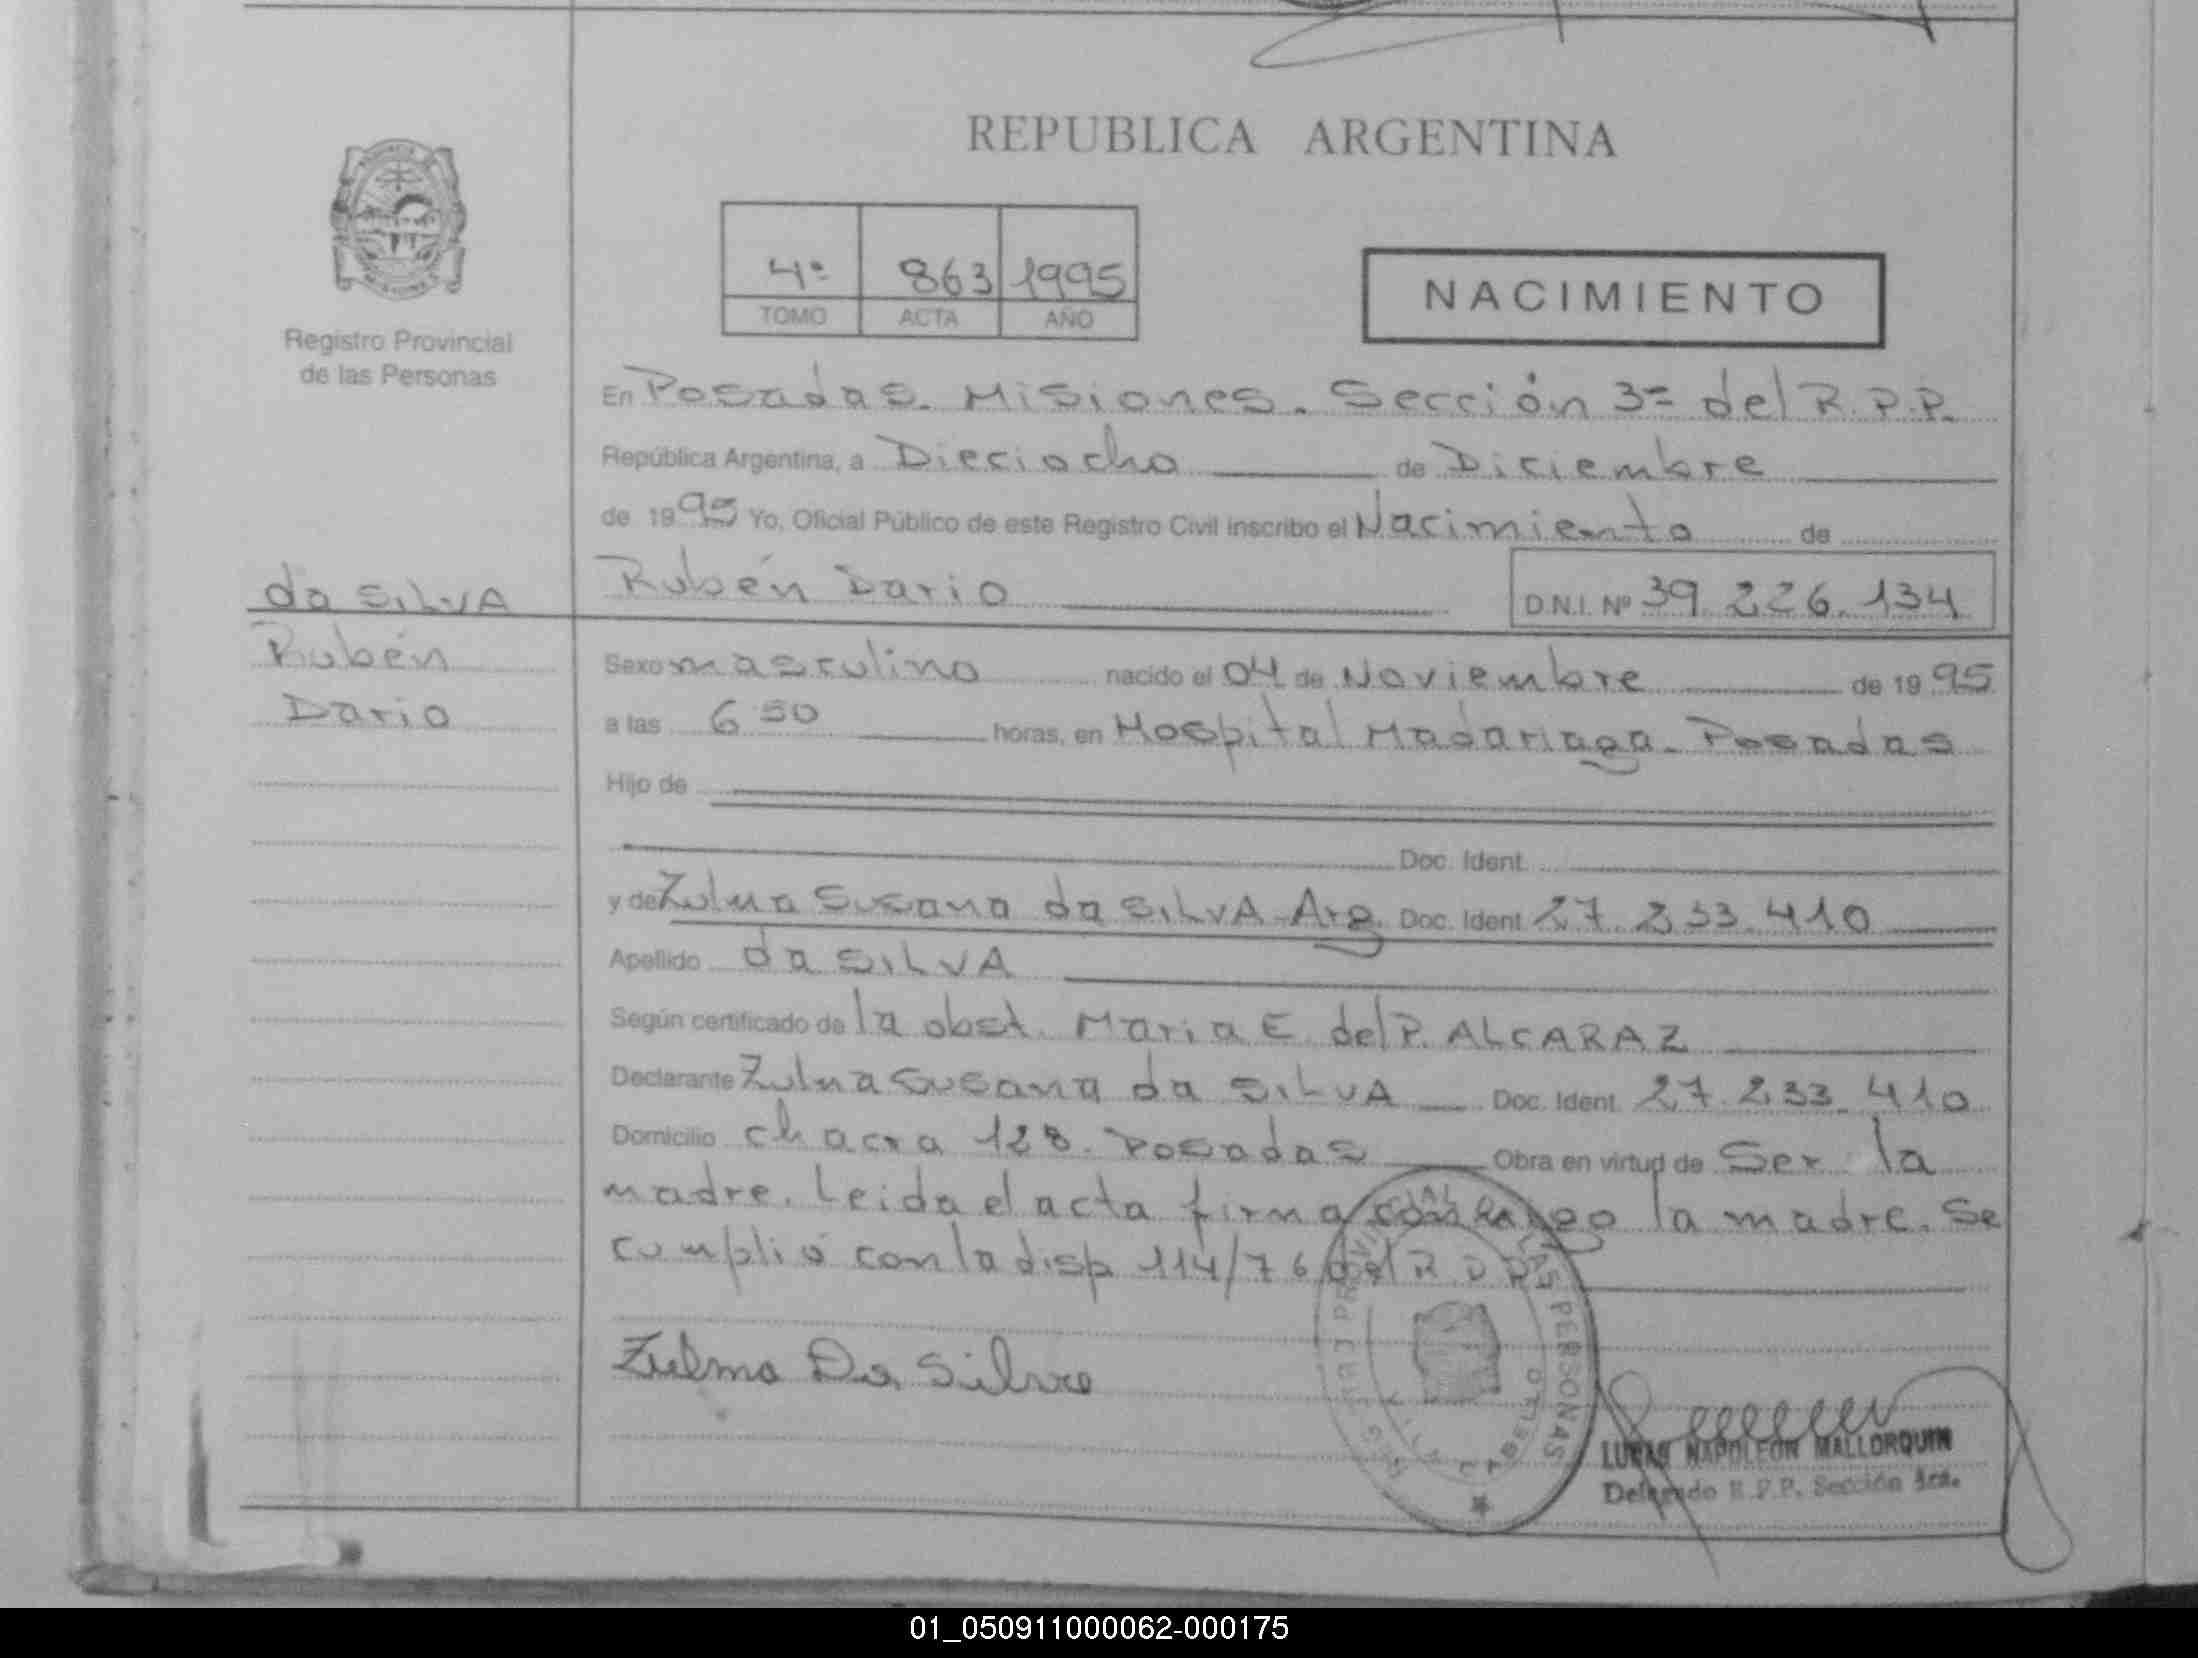 REPUBLICA ARGENTINA
4º 863 1995
TOMO ACTA AÑO
NACIMIENTO
Registro Provincial
de las Personas
En Posadas. Misiones. Sección 3ª del R.P.P.
República Argentina, a Dieciocho de Diciembre
de 1995 Yo, Oficial Público de este Registro Civil inscribo el Nacimiento de
da SILVA
Rubén Dario D.N.I. Nº 39.226.134
Rubén
Dario
Sexo masculino nacido el 04 de Noviembre de 1995
a las 6 horas, en Hospital Madariaga. Posadas
Hijo de
Doc. Ident.
y de Zulma Susana da SILVA Arg. Doc. Ident. 27.233.410
Apellido da SILVA
Según certificado de la obst. Maria E. del P. ALCARAZ
Declarante Zulma Susana da SILVA Doc. Ident. 27.233.410
Domicilio chacra 128. Posadas Obra en virtud de Ser la
madre. Leida el acta firma conmigo la madre. Se
cumplió con la disp 114/76 del R.P.P.
Zulma Da Silva
PROVINCIAL DE LAS PERSONAS
LUCAS NAPOLEON MALLORQUIN
Delegado R.P.P. Sección 3ra.
01_050911000062-000175